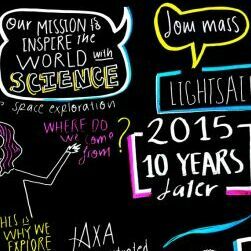 Our MISSION is
INSPIRE the
WORLD with
SCIENCE
space exploration
WHERE DO
we come
from?
THIS IS
WHY WE
EXPLORE
tAXA
low mass
LIGHTSAI
2015
10 YEARS
later